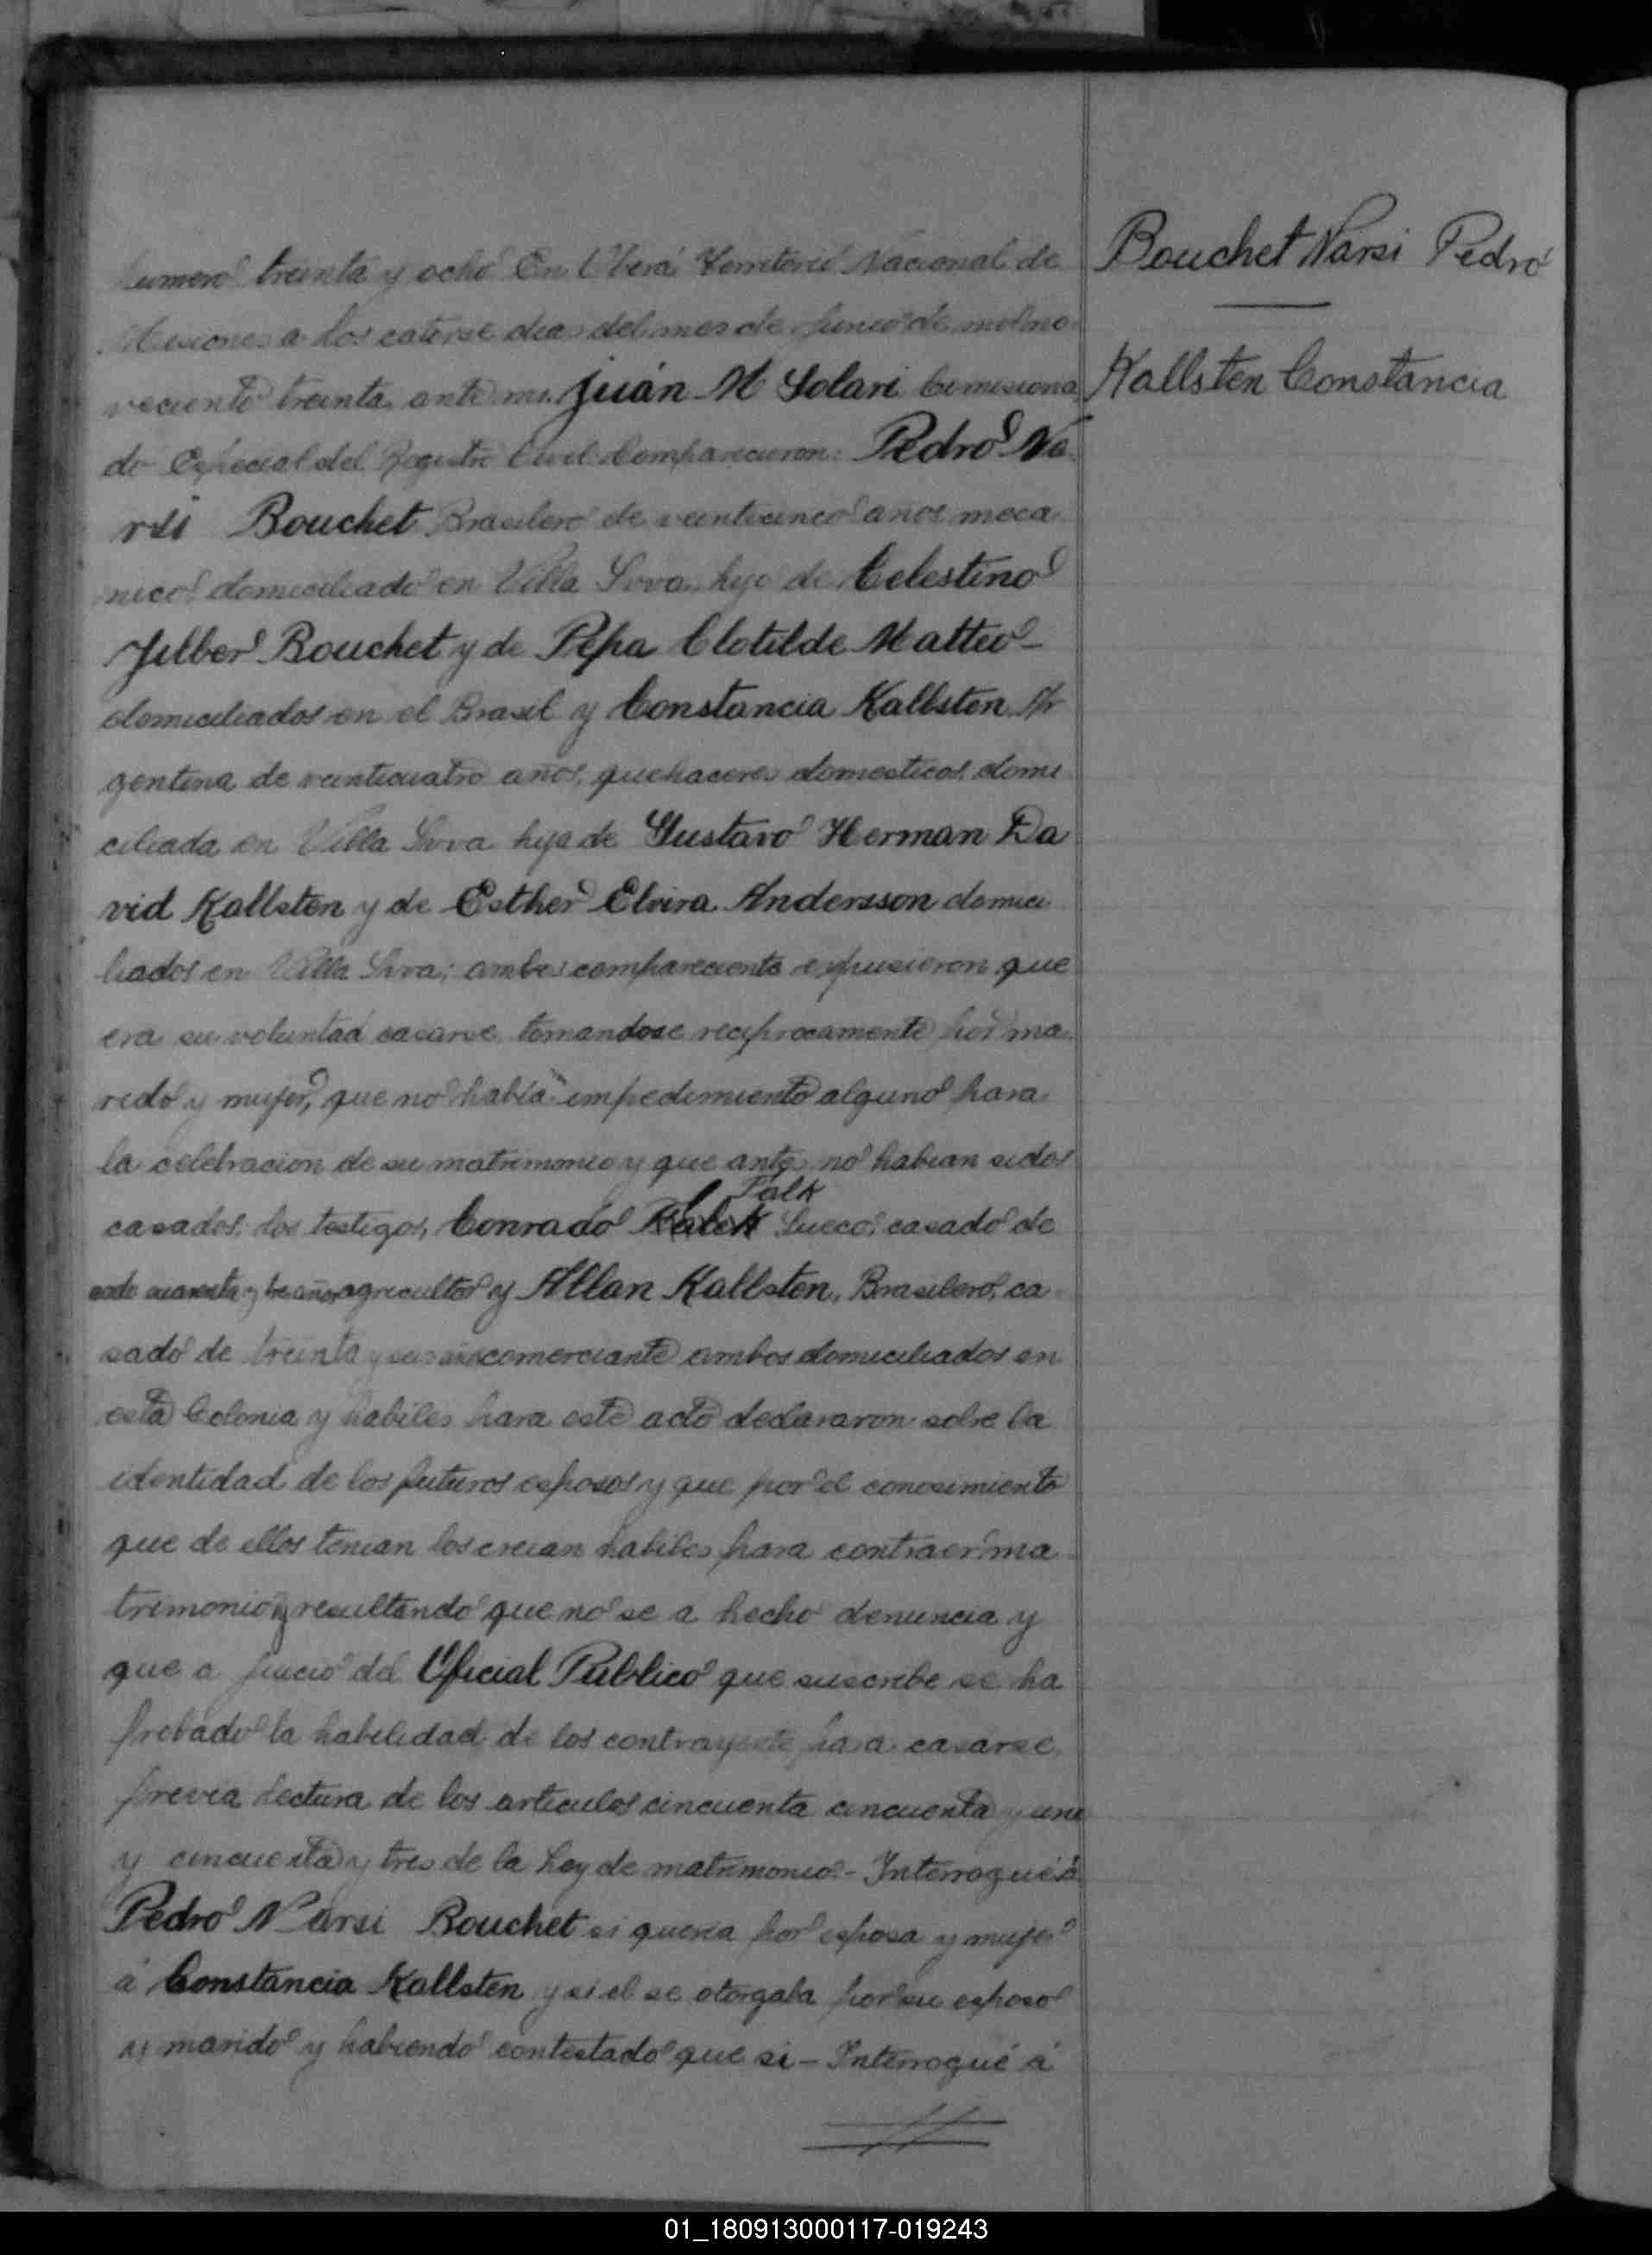 Bouchet Narsi Pedro
Kallsten Constancia
Numero treinta y ocho En Oberá Territorio Nacional de
Misiones a los catorse dias del mes de Junio de mil no
veciento treinta, ante mi. Juán M Solari Comisiona
do Especial del Registro Civil Comparecieron: Pedro Na
rsi Bouchet Brasilero de veinticinco años meca
nico domiciliado en Villa Svva, hijo de Celestino
Jilber Bouchet y de Pepa Clotilde Matteo-
domiciliados en el Brasil y Constancia Kallsten Ar
gentina de veinticuatro años, quehaceres domesticos, domi
ciliada en Villa Svva hija de Gustavo Herman Da
vid Kallsten y de Esther Elvira Andersson domici
liados en Villa Svva; ambos compareciente expusieron que
era su voluntad casarse tomandose reciprocamente por ma
rido y mujer, que no había impedimiento alguno para
la celebracion de su matrimonio y que antes no habian sidos
Falk
casados; los testigos, Conrado Sueco, casado de
cuarenta y tre años agricultor y Allan Kallsten, Brasilero, ca
sado de treinta y seis años comerciante ambos domiciliados en
esta Colonia y habiles para este acto declararon sobre la
identidad de los futuros esposos y que por el conosimiento
que de ellos tenian los creian habiles para contraer ma
trimonio y resultando que no se a hecho denuncia y
que a juicio del Oficial Publico que suscribe se ha
probado la habilidad de los contrayente para casarse,
previa lectura de los articulos cincuenta cincuenta y uno
y cincuenta y tres de la Ley de matrimonio.- Interrogué á
Pedro Narsi Bouchet si queria por esposa y mujer
á Constancia Kallsten y si el se otorgaba por su esposo
y marido y habiendo contestado que si - Interrogué á
01_180913000117-019243